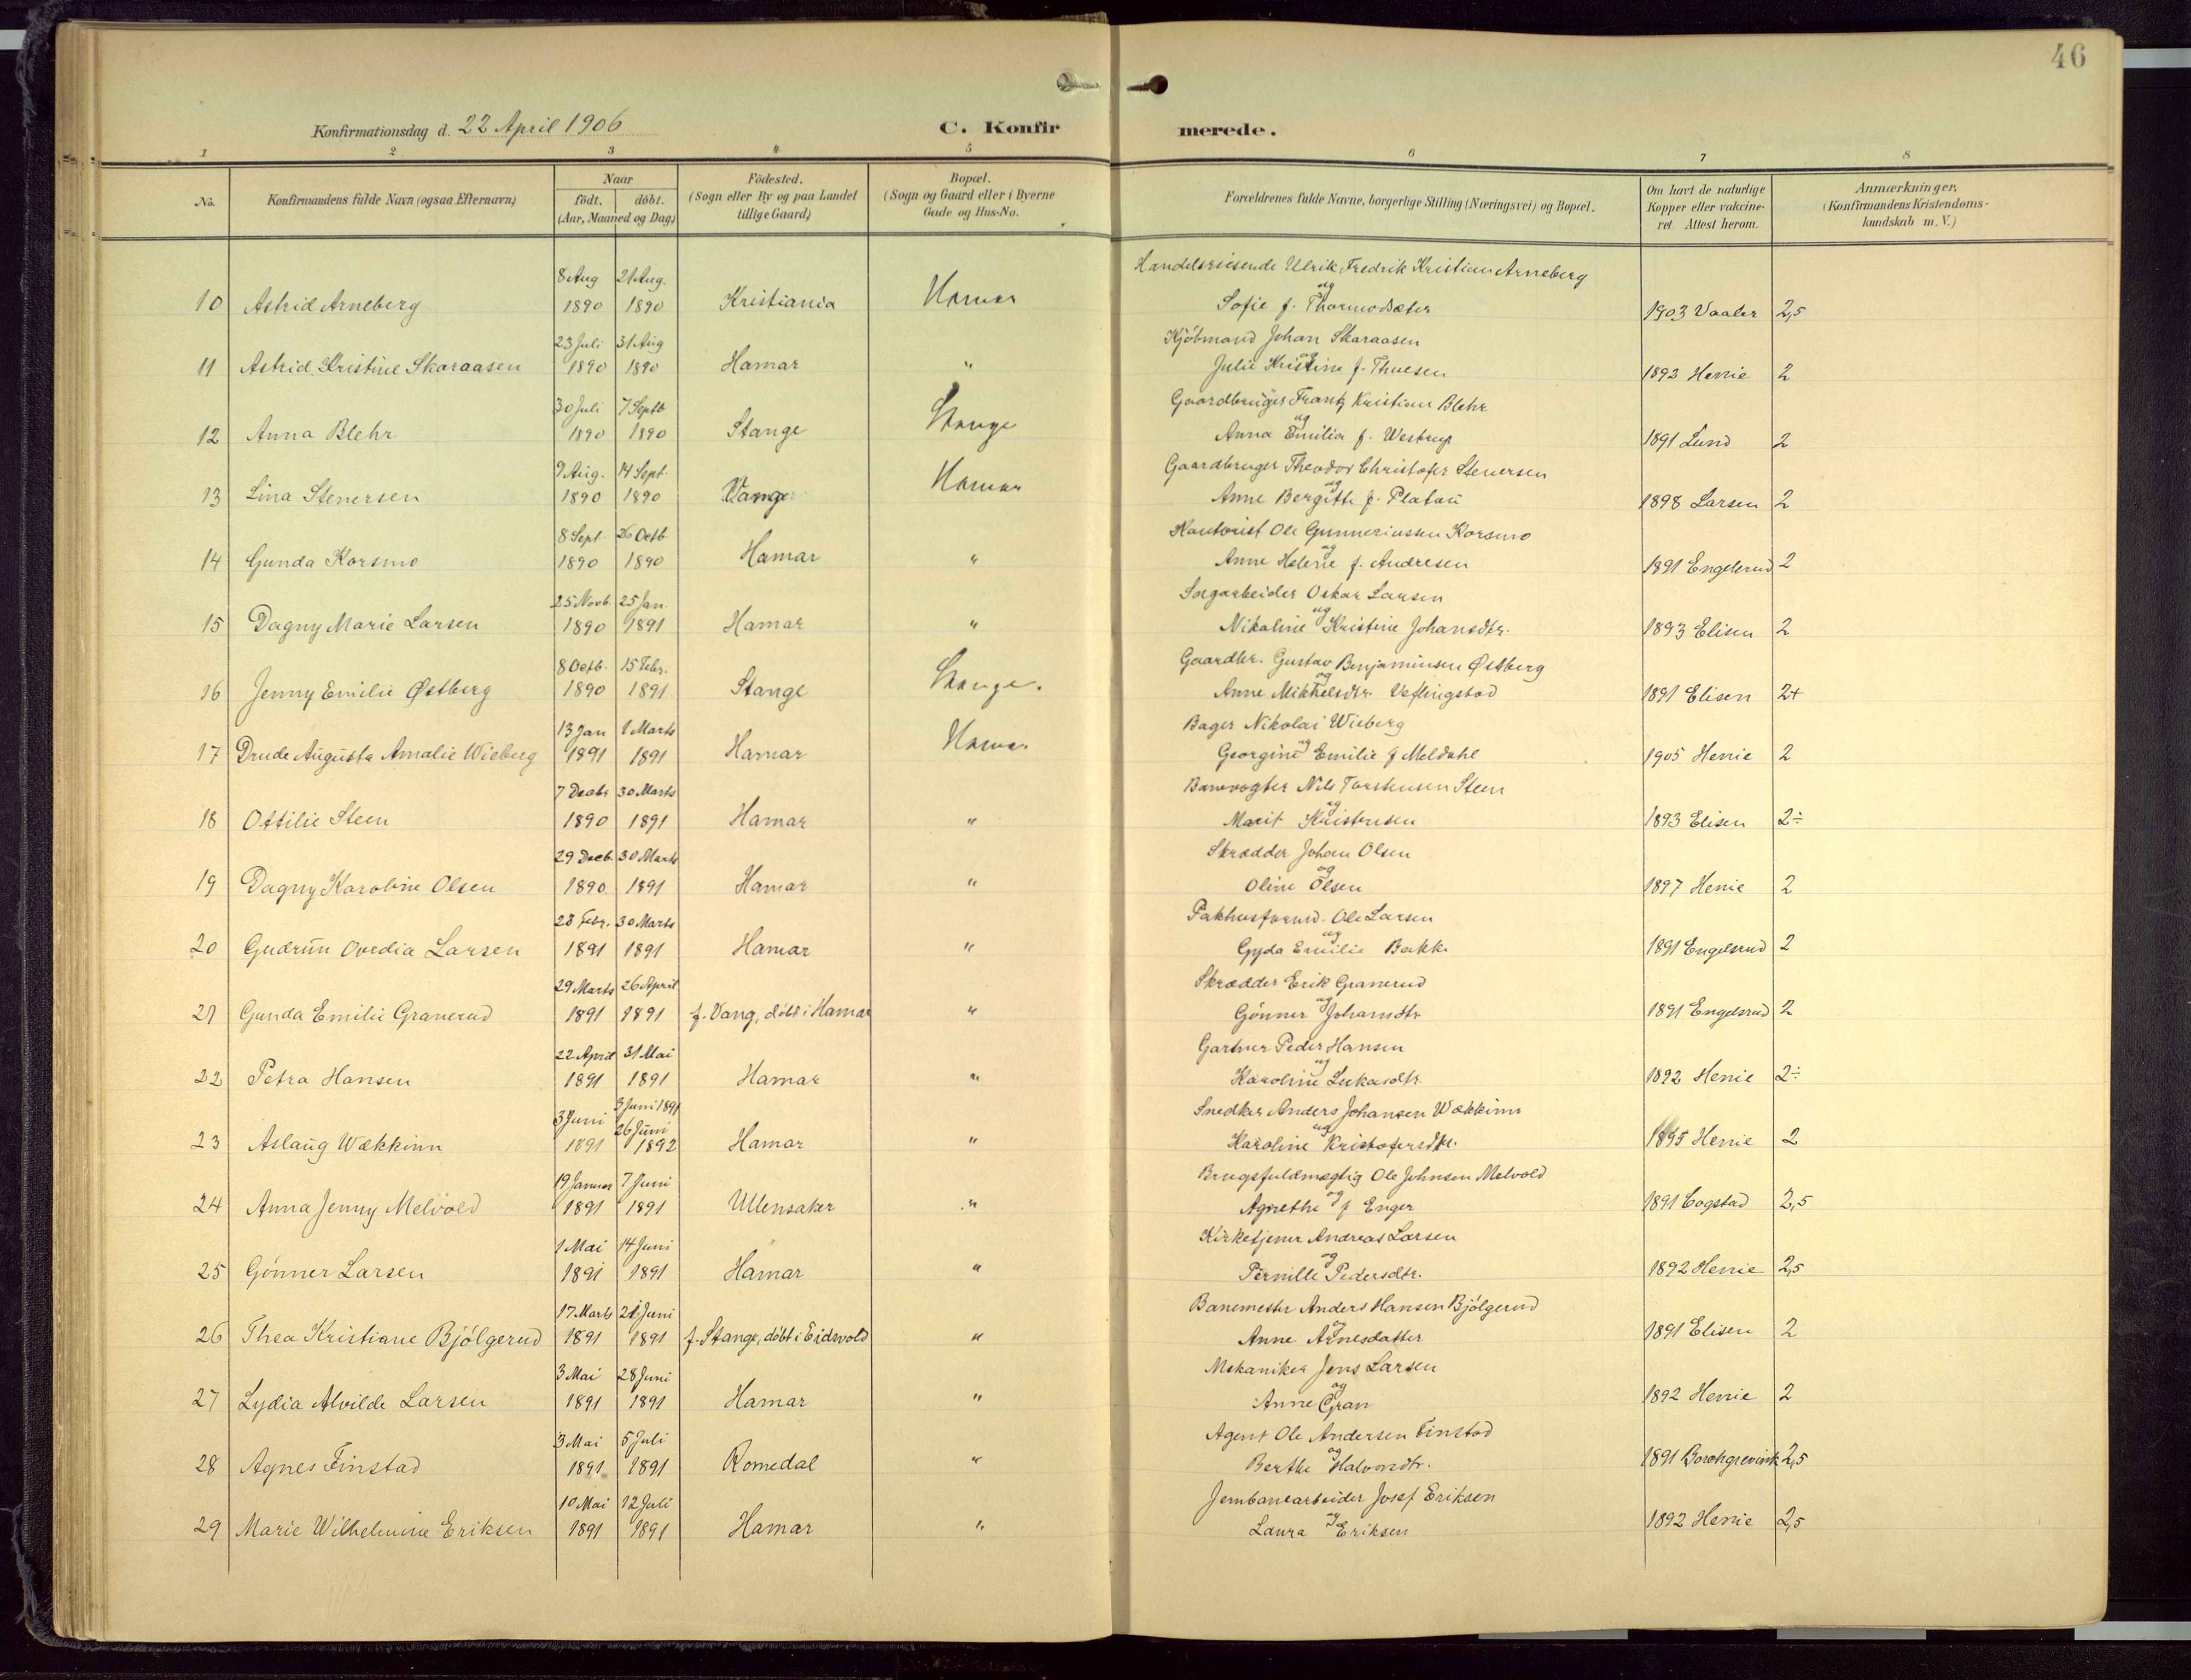 46
Konfirmationsdag d. 22 April 1906
C. Konfirmerede.
1 2 3 4 5 6 7 8
No. Konfirmandens fulde Navn (ogsaa Efternavn) Naar födt. döbt. (Aar, Maaned og Dag) Födested. (Sogn eller By og paa Landet tillige Gaard) Bopæl. (Sogn og Gaard eller i Byerne Gade og Hus-No. Forældrenes fulde Navne, borgerlige Stilling (Næringsvei) og Bopæl. Om havt de naturlige Kopper eller vakcineret. Attest herom. Anmærkninger. (Konfirmandens Kristendomskundskab m. V.)
8 Aug 21 Aug. Handelsreisende Ulrik Fredrik Kristian Arneberg
10 Astrid Arneberg 1890 1890 Kristiania Hamar og Sofie f. Thormodsæter 1903 Vaaler 2,5
23 Juli 31 Aug Kjöbmand Johan Skaraasen
11 Astrid Kristine Skaraasen 1890 1890 Hamar " og Julie Kristine f. Thuesen 1893 Henie 2
30 Juli 7 Septb Gaardbruger Frantz Kristian Blehr
12 Anna Blehr 1890 1890 Stange Stange og Anna Emilia f. Westrup 1891 Lund 2
9 Aug. 14 Sept. Gaardbruger Theodor Christofer Stenersen
13 Lina Stenersen 1890 1890 Vang Hamar og Anne Bergitte f. Platau 1898 Larsen 2
8 Sept. 26 Octb. Kontorist Ole Gunneriussen Korsmo
14 Gunda Korsmo 1890 1890 Hamar " og Anne Helene f. Andresen 1891 Engelsrud 2
25 Novb. 25 Jan. Sagarbeider Oskar Larsen
15 Dagny Marie Larsen 1890 1891 Hamar " og Nikoline Kristine Johansdtr. 1893 Elisen 2
8 Octb. 15 Febr. Gaardbr. Gustav Benjaminsen Østberg
16 Jenny Emilie Østberg 1890 1891 Stange Stange. og Anne Mikkelsdtr. Veflingstad 1891 Elisen 2+
13 Jan 1 Marts Bager Nikolai Wieberg
17 Drude Augusta Amalie Wieberg 1891 1891 Hamar Hamar og Georgine Emilie f Meldahl 1905 Henie 2
7 Decbr 30 Marts Banevogter Nils Torstensen Steen
18 Ottilie Steen 1890 1891 Hamar " og Marit Kristensen 1893 Elisen 2÷
29 Decb. 30 Marts Skrædder Johan Olsen
19 Dagny Karoline Olsen 1890 1891 Hamar " og Oline Olsen 1897 Henie 2
28 Febr. 30 Marts Pakhusformd. Ole Larsen
20 Gudrun Ovedia Larsen 1891 1891 Hamar " og Gyda Emilie Bakk. 1891 Engelsrud 2
29 Marts 26 April Skrædder Erik Granerud
21 Gunda Emilie Granerud 1891 1891 f. Vang, döbt i Hamar " og Gönner Johansdtr. 1891 Engelsrud 2
22 April 31 Mai Gartner Peder Hansen
22 Petra Hansen 1891 1891 Hamar " og Karoline Lukasdtr. 1892 Henie 2÷
3 Juni 3 Juni 1891 Snedker Anders Johansen Wækkinn
23 Aslaug Wækkinn 1891 26 Juni 1892 Hamar " og Karoline Kristofersdtr. 1895 Henie 2
19 Januar 7 Juni Brugsfuldmægtig Ole Johnsen Melvold
24 Anna Jenny Melvold 1891 1891 Ullensaker " og Agnethe f Enger 1891 Cogstad 2,5
1 Mai 14 Juni Kirketjener Andreas Larsen
25 Gönner Larsen 1891 1891 Hamar " og Pernille Pedersdtr. 1892 Henie 2,5
17 Marts 21 Juni Banemester Anders Hansen Bjölgerud
26 Thea Kristiane Bjölgerud 1891 1891 f. Stange, döbt i Eidsvold " og Anne Arnesdatter 1891 Elisen 2
3 Mai 28 Juni Mekaniker Jens Larsen
27 Lydia Alvilde Larsen 1891 1891 Hamar " og Anne Gran 1892 Henie 2
3 Mai 5 Juli Agent Ole Andersen Finstad
28 Agnes Finstad 1891 1891 Romedal " og Berthe Halvorsdtr. 1891 Borchgrevink 2,5
10 Mai 12 Juli Jernbanearbeider Josef Eriksen
29 Marie Wilhelmine Eriksen 1891 1891 Hamar " og Laura Eriksen 1892 Henie 2,5